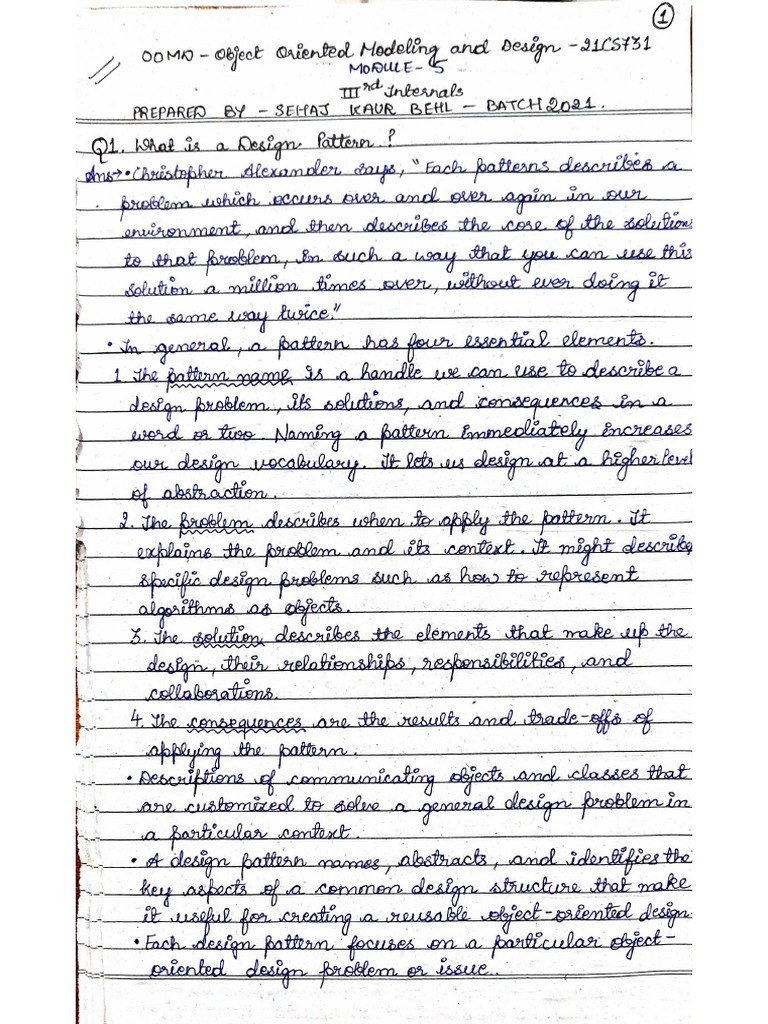 1
OOMD - Object Oriented Modeling and Design - 21CS731
MODULE - 5
IIIrd Internals
PREPARED BY - SEHAJ KAUR BEHL - BATCH 2021.
Q1. What is a Design Pattern?
Ans→ • Christopher Alexander says, "Each patterns describes a
problem which occurs over and over again in our
environment, and then describes the core of the solution
to that problem, in such a way that you can use this
solution a million times over, without ever doing it
the same way twice."
• In general, a pattern has four essential elements.
1. The pattern name is a handle we can use to describe a
design problem, its solutions, and consequences in a
word or two. Naming a pattern immediately increases
our design vocabulary. It lets us design at a higher level
of abstraction.
2. The problem describes when to apply the pattern. It
explains the problem and its context. It might describe
specific design problems such as how to represent
algorithms as objects.
3. The solution describes the elements that make up the
design, their relationships, responsibilities, and
collaborations.
4. The consequences are the results and trade-offs of
applying the pattern.
• Descriptions of communicating objects and classes that
are customized to solve a general design problem in
a particular context.
• A design pattern names, abstracts, and identifies the
key aspects of a common design structure that make
it useful for creating a reusable object-oriented design.
• Each design pattern focuses on a particular object-
oriented design problem or issue.